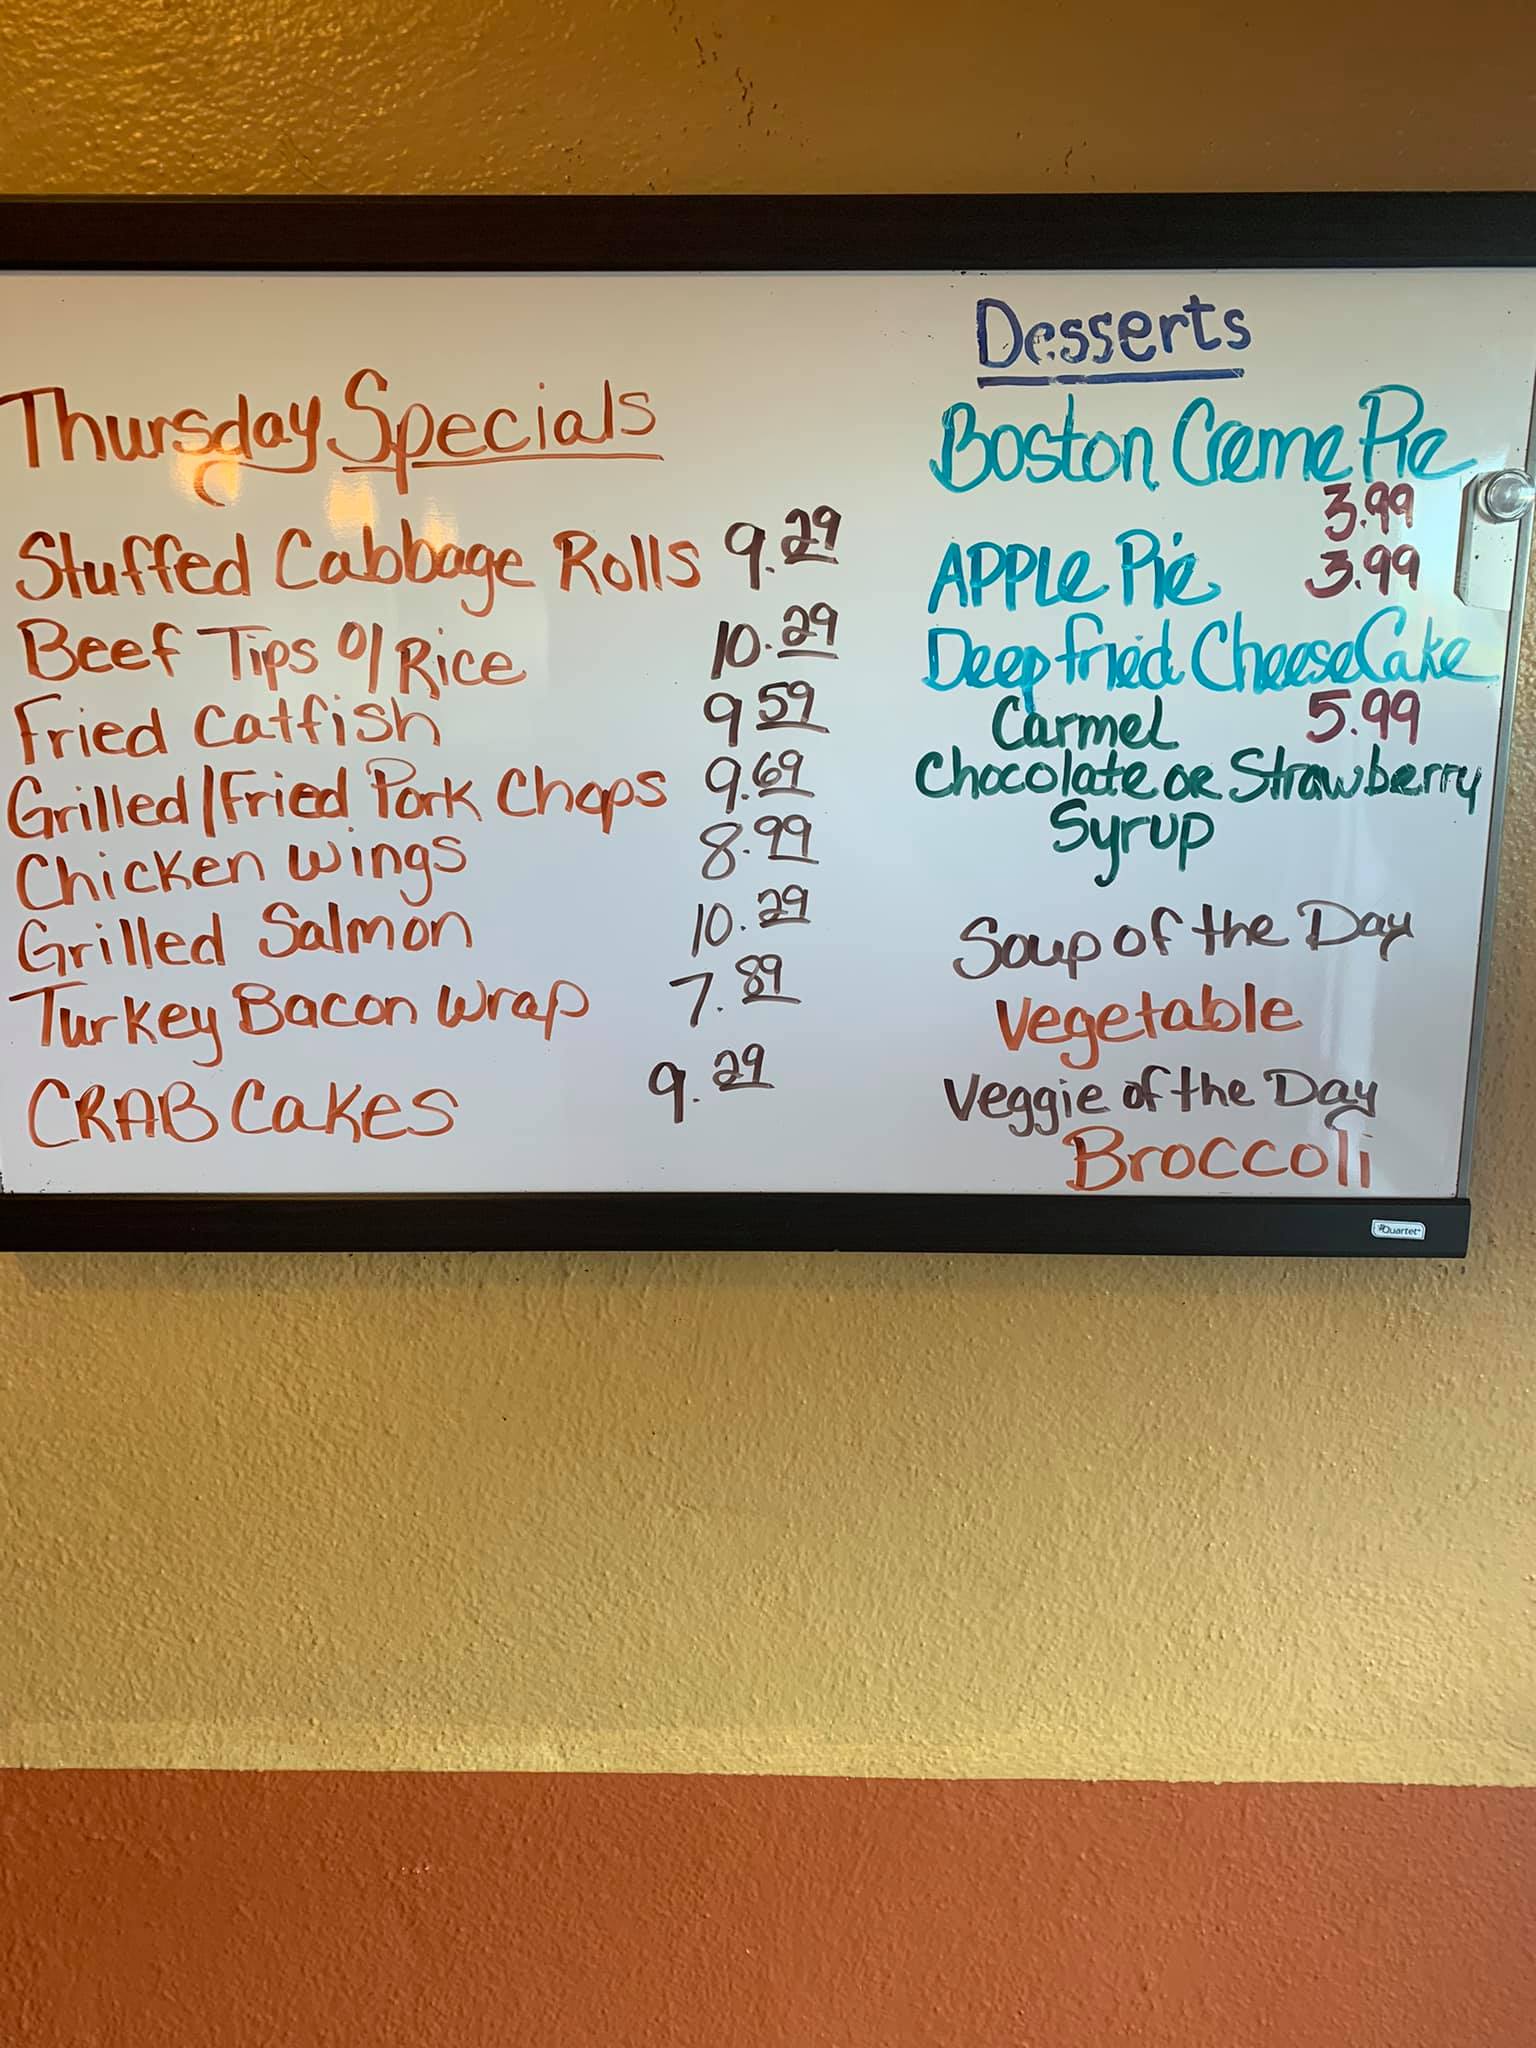 Thursday Specials
Stuffed Cabbage Rolls 9.29
Beef Tips O/Rice 10.29
Fried Catfish 9 59
Grilled/Fried Pork Chops 9.69
Chicken Wings 8.99
Grilled Salmon 10.29
Turkey Bacon Wrap 7.89
CRAB Cakes 9.29
Desserts
Boston Creme Pie
3.99
APPLe Pie 3.99
Deep fried CheeseCake
Carmel 5.99
Chocolate or Strawberry
Syrup
Soup of the Day
Vegetable
Veggie of the Day
Broccoli
Quartet